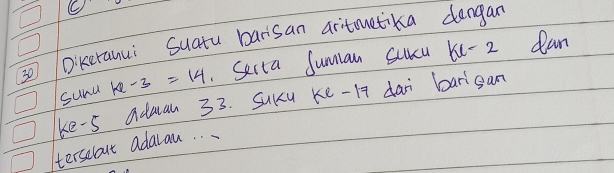 C
30 Diketahui suatu barisan aritmetika dengan
suku ke-3 = 14. Serta Jumlah suku ke-2 dan
ke-5 adalah 33. Suku ke-17 dari barisan
tersebut adalah ...